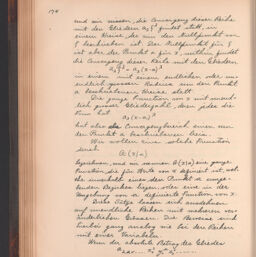 174
und wir wissen, die Convergenz dieser Reihe
mit den Gliedern a₂ξ² findet statt, in
einem Kreise, der um den Nullpunkt von
ξ beschrieben ist. Der Nullpunkt für ξ
ist aber der Punkt a für x, mithin findet
die Convergenz dieser Reihe mit den Gliedern
in einem mit einem endlichen oder un-
endlich grossen Radius um den Punkt
a beschriebenen Kreise statt.
Die ganze Function von x mit unend-
lich grosser Gliederzahl, deren jedes die
Form hat
hat also als Convergenzbereich einen um
den Punkt a beschriebenen Kreis.
Wir wollen eine solche Function
durch
(x|a)
bezeichnen, und wir nennen (x|a) eine ganze
Function, die für Werte von x definiert ist, welche
innerhalb eines den Punkt a umge-
benden Bezirkes liegen, oder eine in der
Umgebung von a definierte Function von x.
Diese Sätze lassen sich ausdehnen
auf unendliche Reihen mit mehreren ver-
änderlichen Grössen. Die Beweise sind
hierbei ganz analog wie bei den Reihen
mit einer Variabeln.
Wenn der absolute Betrag des Gliedes